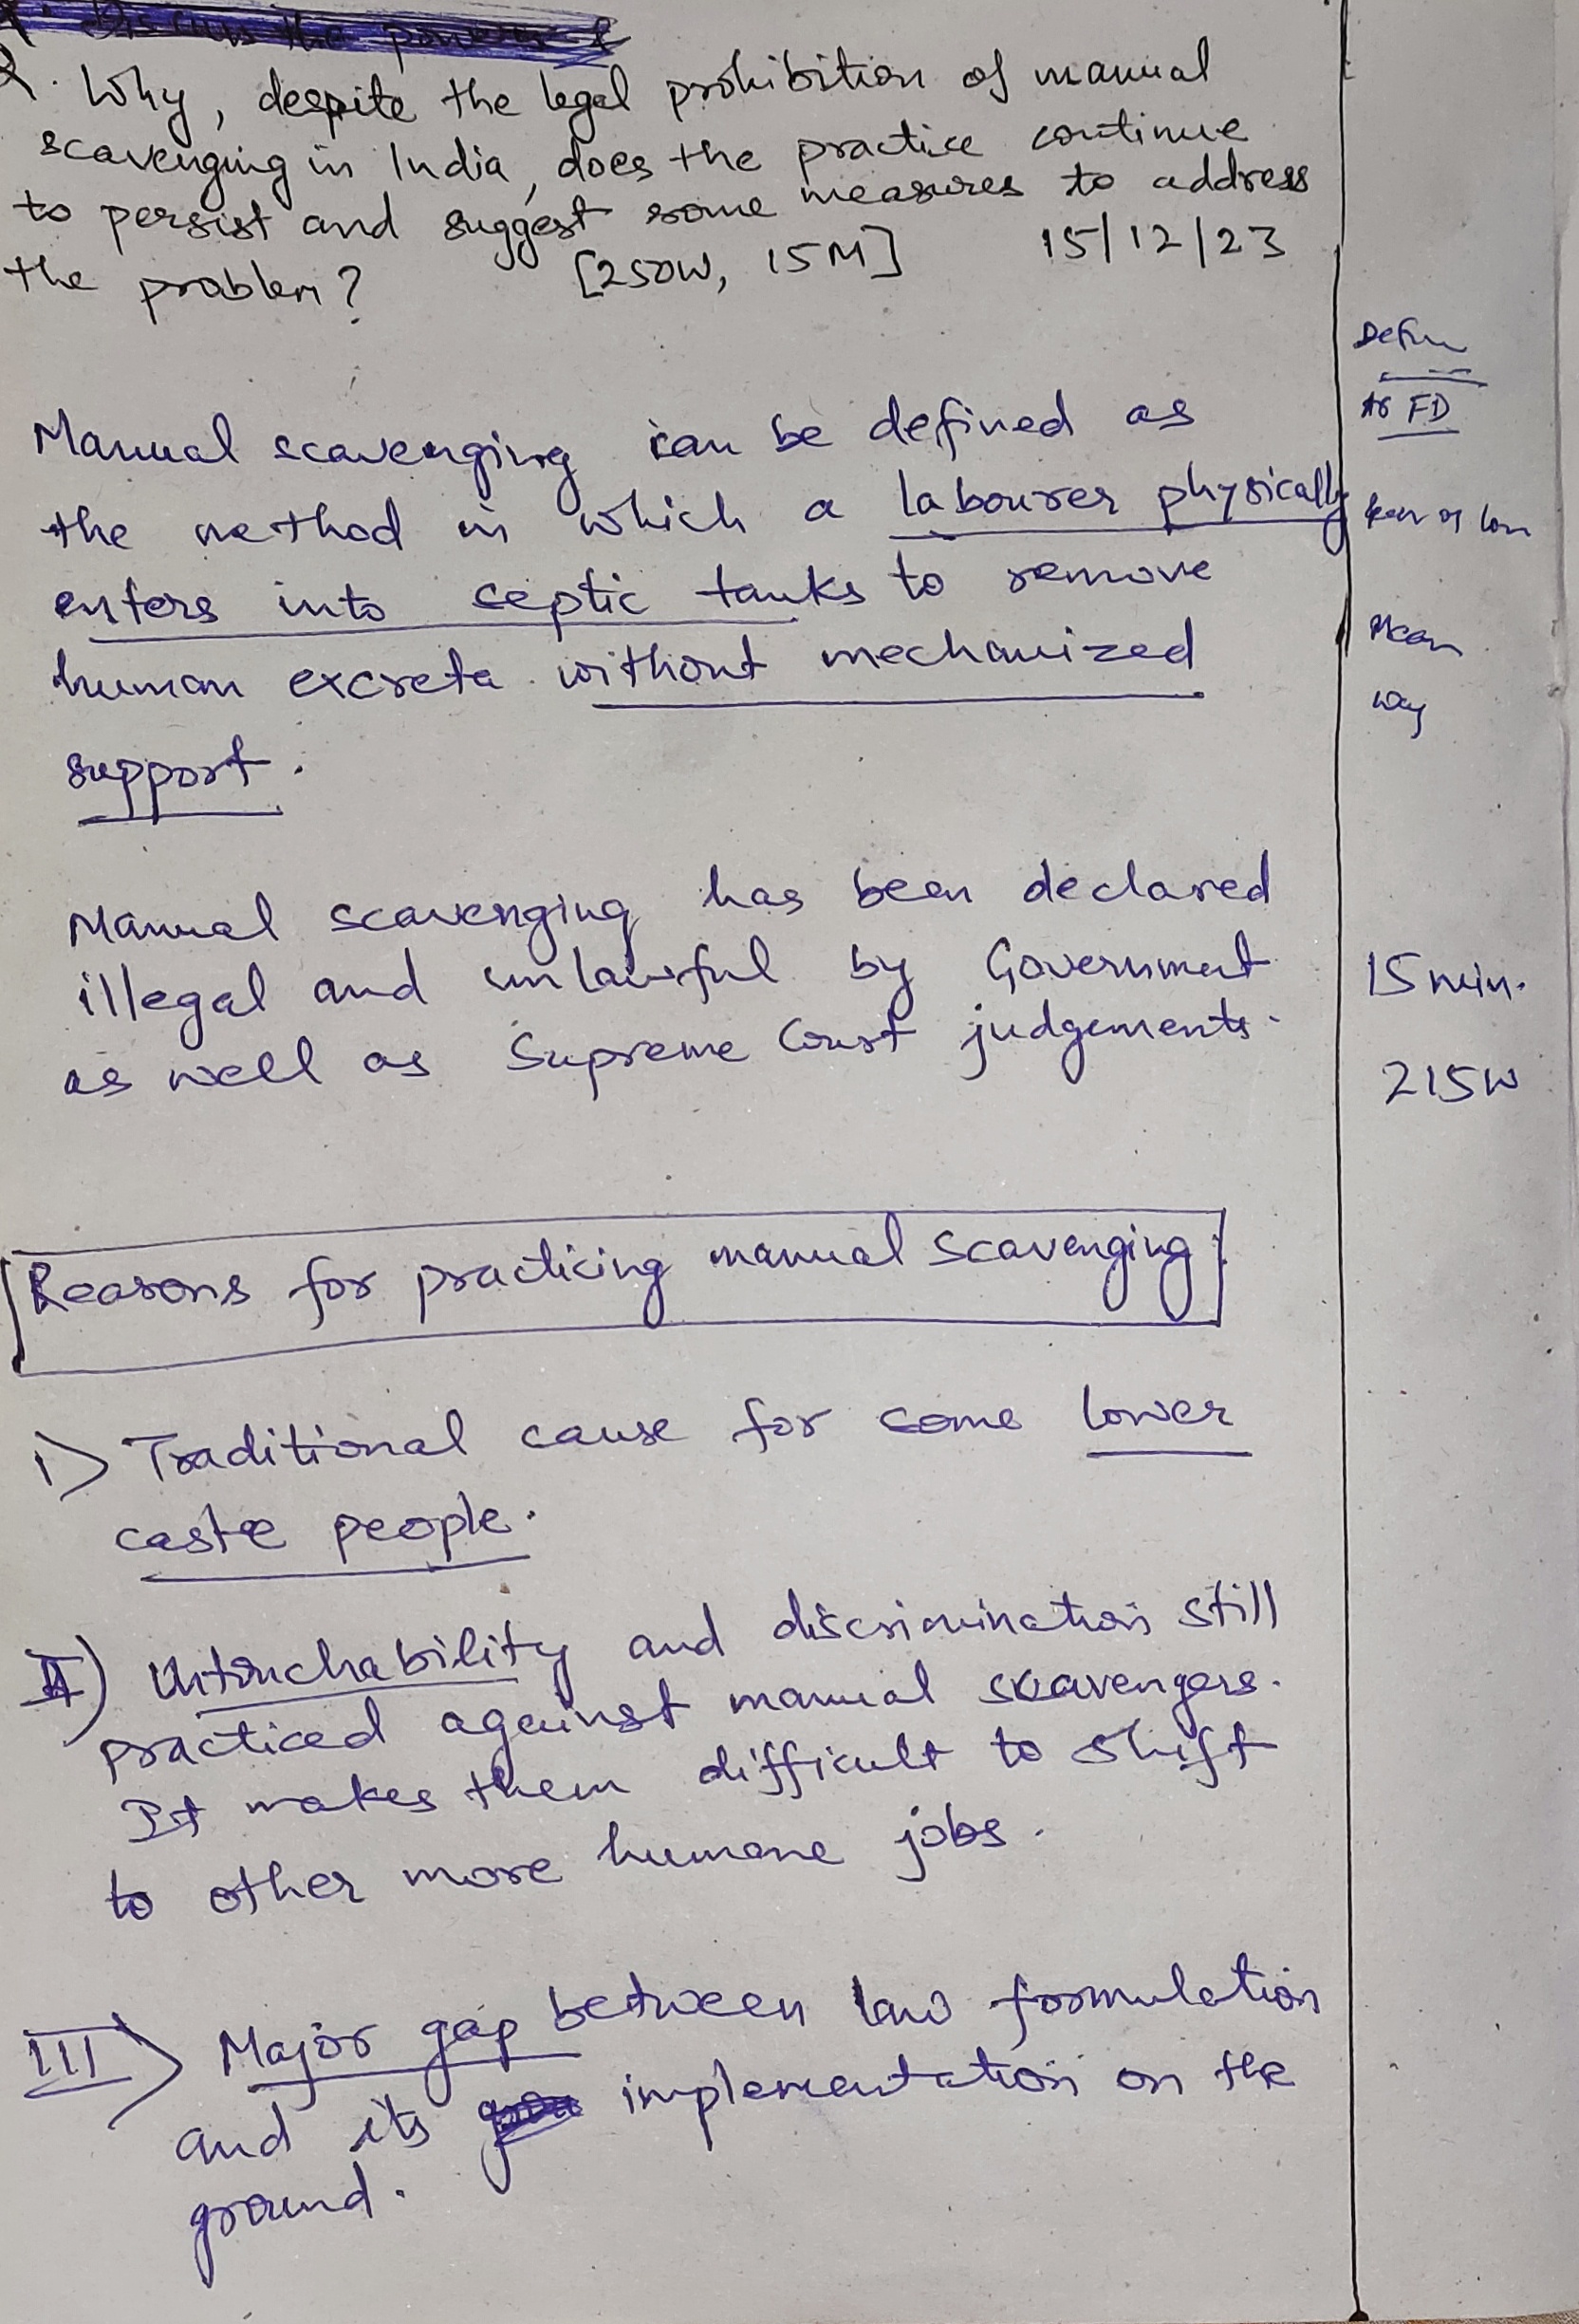 2. Why, despite the legal prohibition of manual
scavenging in India, does the practice continue
to persist and suggest some measures to address
the problem? [250W, 15M] 15/12/23
Manual scavenging can be defined as
the method in which a labourer physically
enters into septic tanks to remove
human excreta without mechanized
support.
Manual scavenging has been declared
illegal and unlawful by Government
as well as Supreme Court judgements.
Reasons for practicing manual scavenging
i) Traditional cause for some lower
caste people.
II) Untouchability and discrimination still
practiced against manual scavengers.
It makes them difficult to shift
to other more humane jobs.
III) Major gap between law formulation
and its implementation on the
ground.
FD
way
15 min.
215W